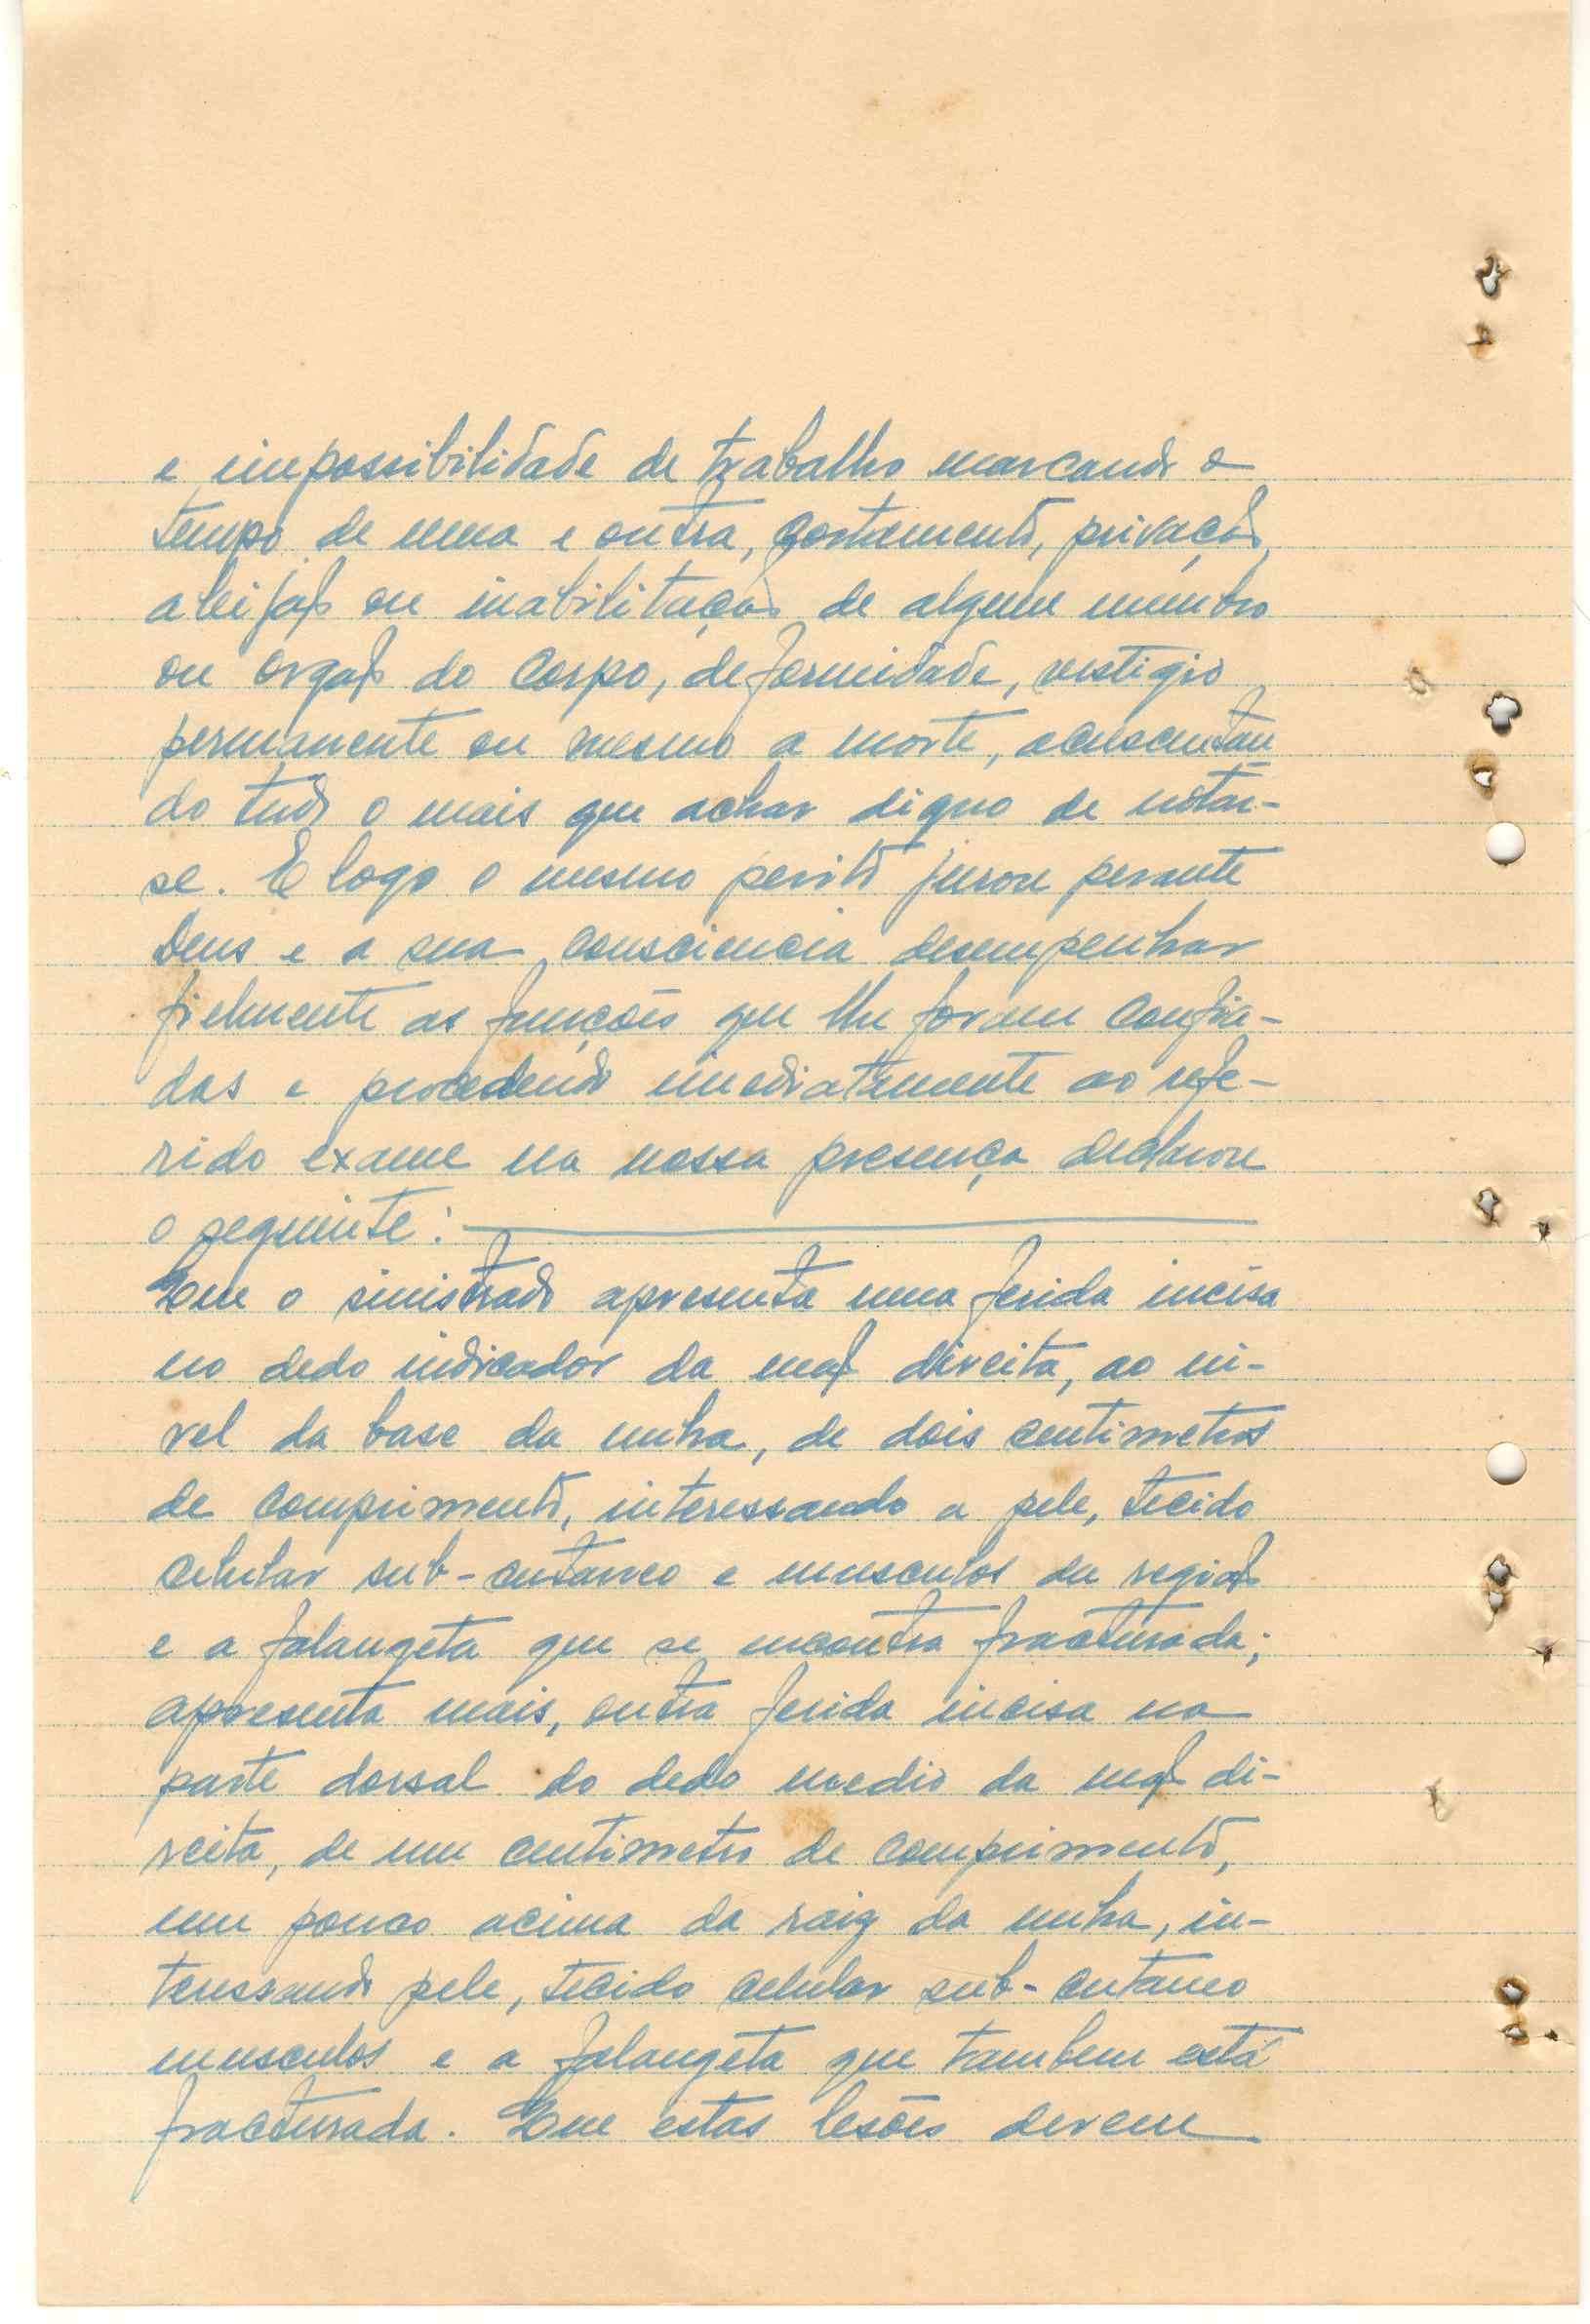 e impossibilidade de trabalho marcando o
tempo de uma e outra, cortamento, privação,
aleijão ou inabilitação de algum membro
ou orgão do corpo, deformidade, vestigio
permanente ou mesmo a morte, acrescentan
do tudo o mais que achar digno de notar-
se. E logo o mesmo perito jurou perante
Deus e a sua consciencia desempenhar
fielmente as funções que lhe foram confia-
das e procedendo imediatamente ao refe-
rido exame na nossa presença declarou
o seguinte:
Que o sinistrado apresenta uma ferida incisa
no dedo indicador da mão direita, ao ni-
vel da base da unha, de dois centimetros
de comprimento, interessando a pele, tecido
celular sub-cutaneo e musculos da região
e a falangeta que se encontra fracturada;
apresenta mais, outra ferida incisa na
parte dorsal do dedo medio da mão di-
reita, de um centimetro de comprimento,
um pouco acima da raiz da unha, in-
teressando pele, tecido celular sub-cutaneo
musculos e a falangeta que tambem está
fracturada. Que estas lesões devem